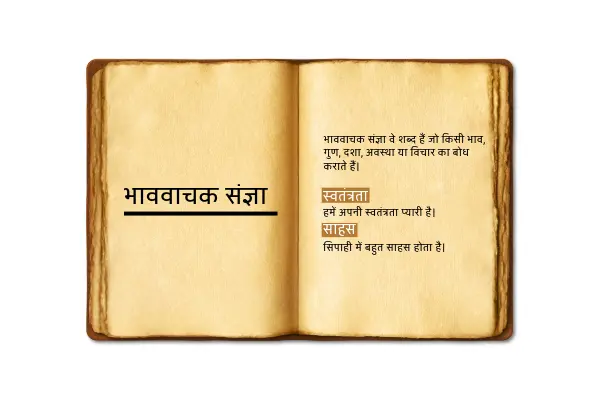 भाववाचक संज्ञा
भाववाचक संज्ञा वे शब्द हैं जो किसी भाव,
गुण, दशा, अवस्था या विचार का बोध
कराते हैं।
स्वतंत्रता
हमें अपनी स्वतंत्रता प्यारी है।
साहस
सिपाही में बहुत साहस होता है।